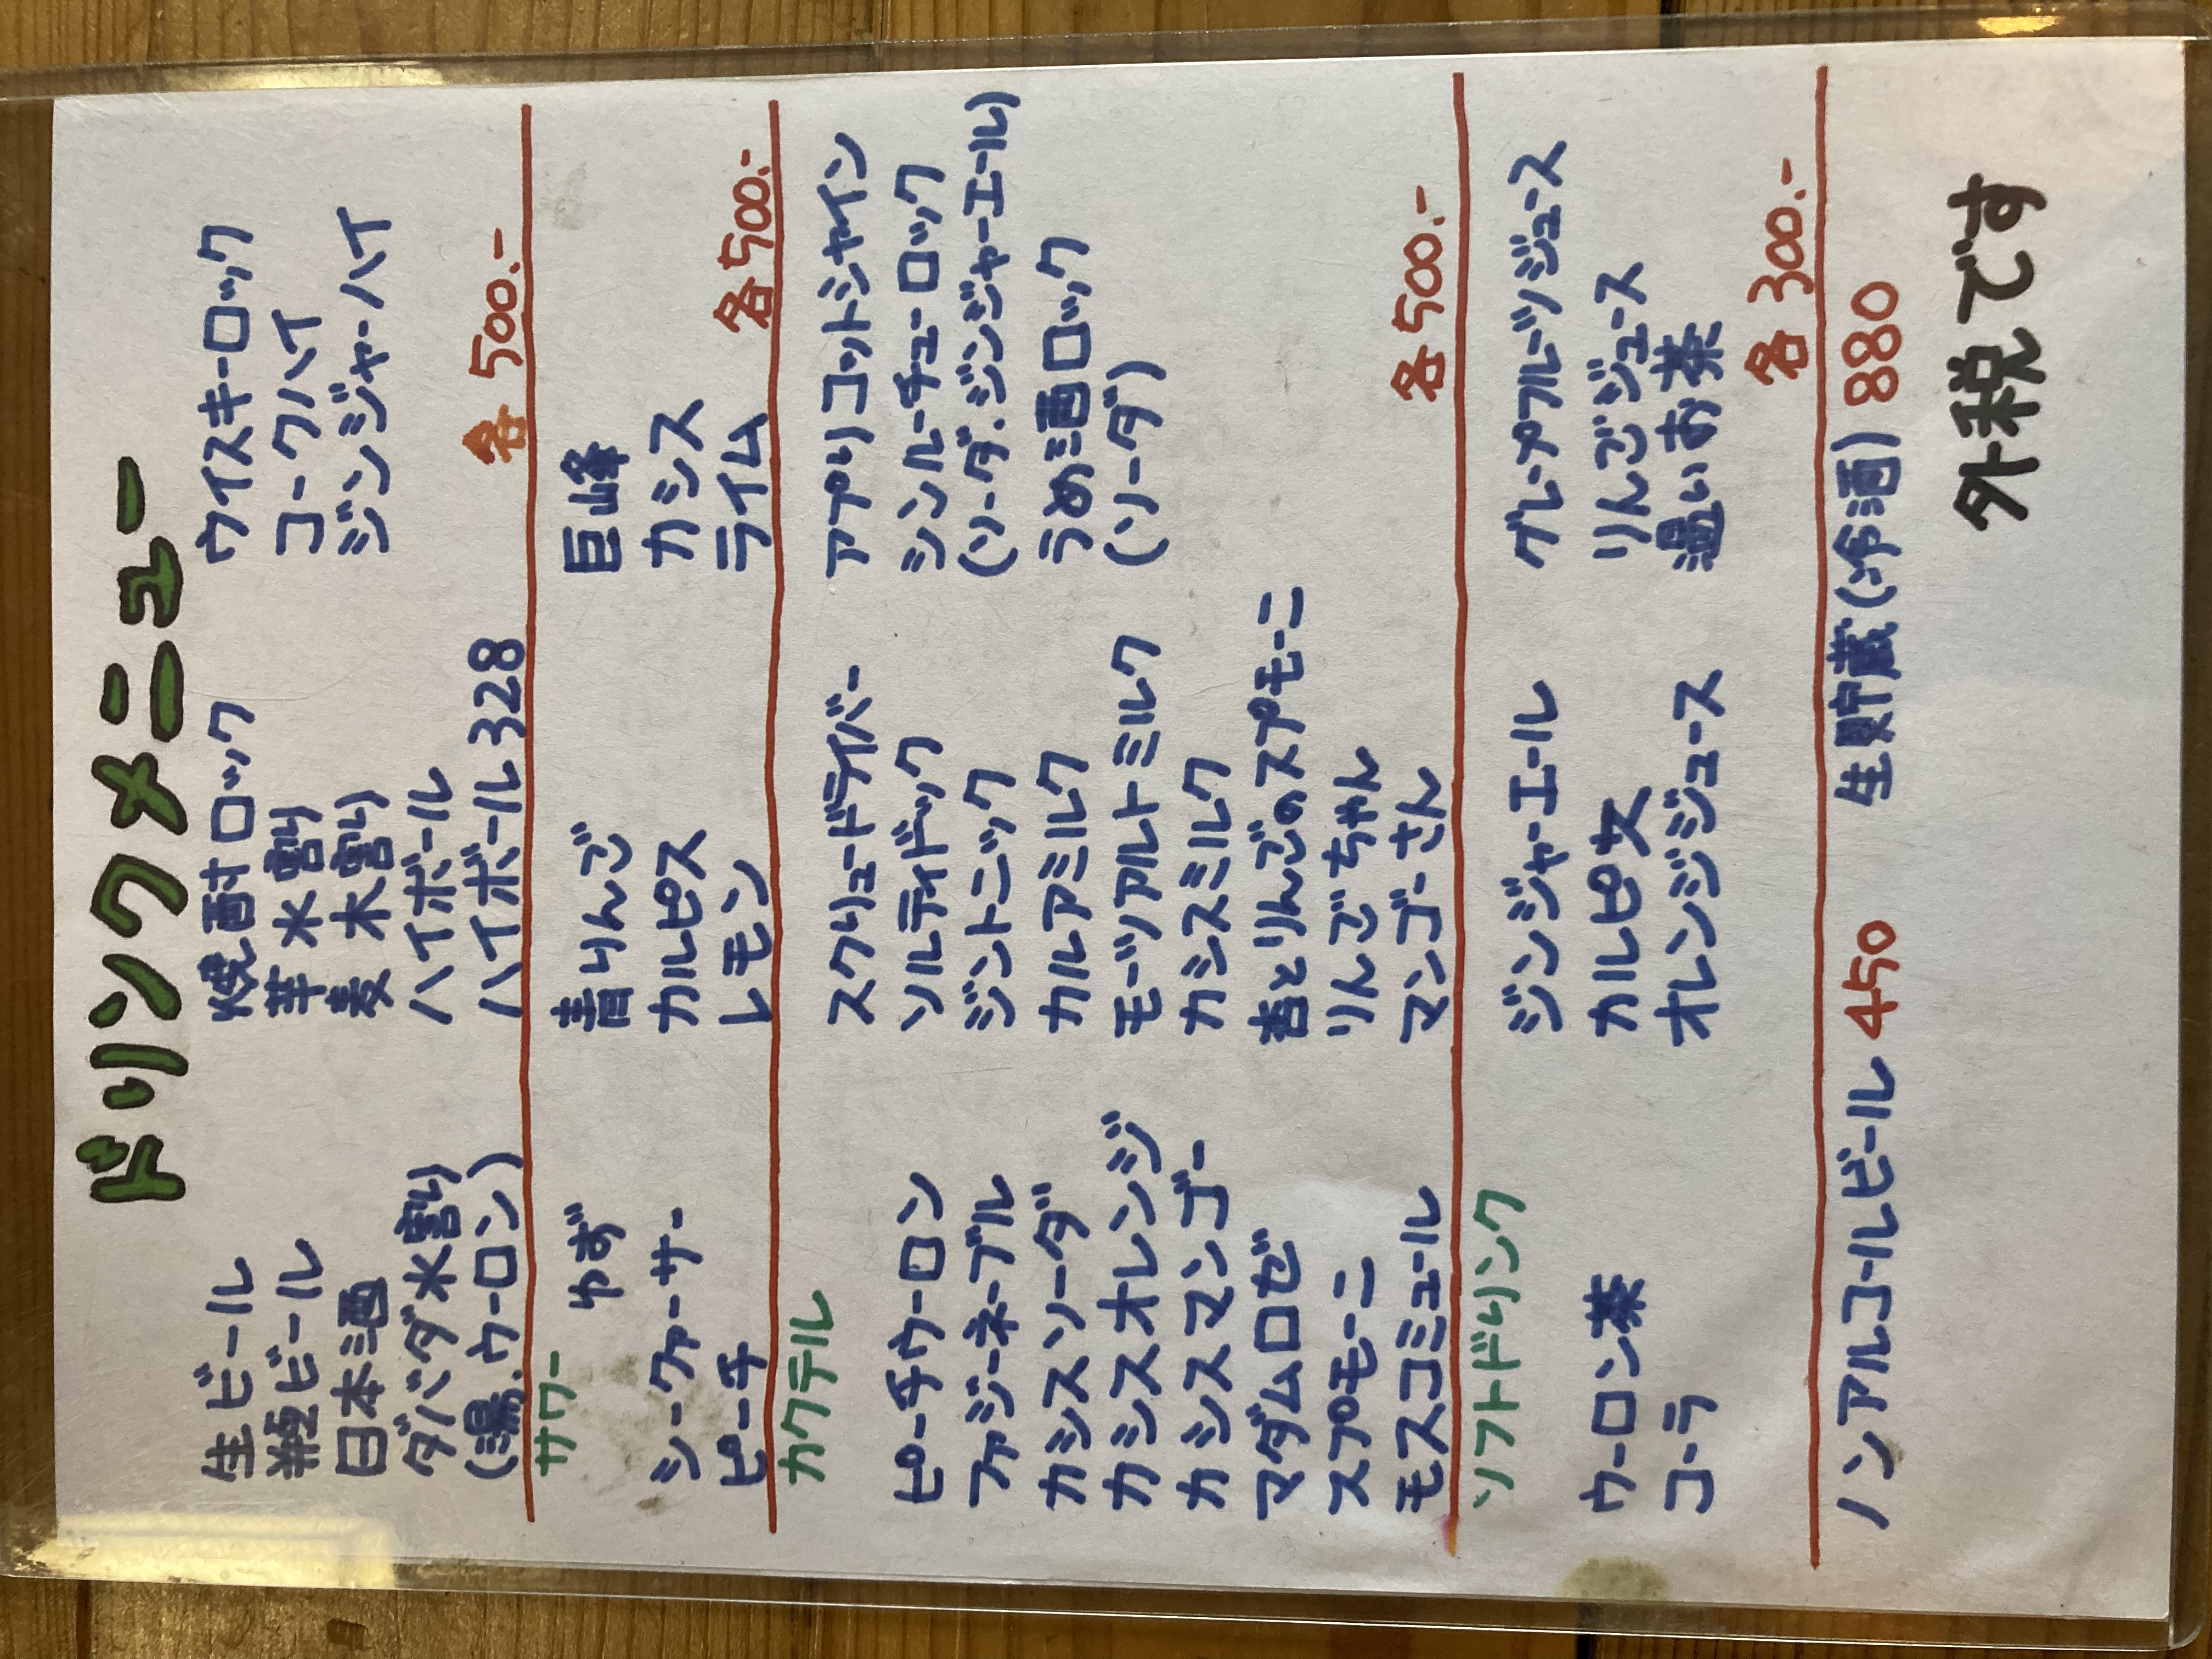 ドリンクメニュー
生ビール 焼酎ロック ウイスキーロック
瓶ビール 芋水割り コークハイ
日本酒 麦水割り ジンジャーハイ
ダバダ水割り ハイボール
(湯.ウーロン) ハイボール328 各500.-
サワー
ゆず 青りんご 巨峰
シークァーサー カルピス カシス
ピーチ レモン ライム 各500.-
カクテル
スクリュードライバー アプリコットシャイン
ピーチウーロン ソルティドッグ シンルーチューロック
ファジーネーブル ジントニック (ソーダ.ジンジャーエール)
カシスソーダ カルアミルク うめ酒ロック
カシスオレンジ モーツアルトミルク (ソーダ)
カシスマンゴー カシスミルク
マダムロゼ 杏とりんごのスプモーニ
スプモーニ りんごちゃん
モスコミュール マンゴーさん 各500.-
ソフトドリンク
ジンジャーエール グレープフルーツジュース
ウーロン茶 カルピ女 りんごジュース
コーラ オレンジジュース 温いお茶
各300.-
ノンアルコールビール 450 生貯蔵(冷酒) 880
外税です